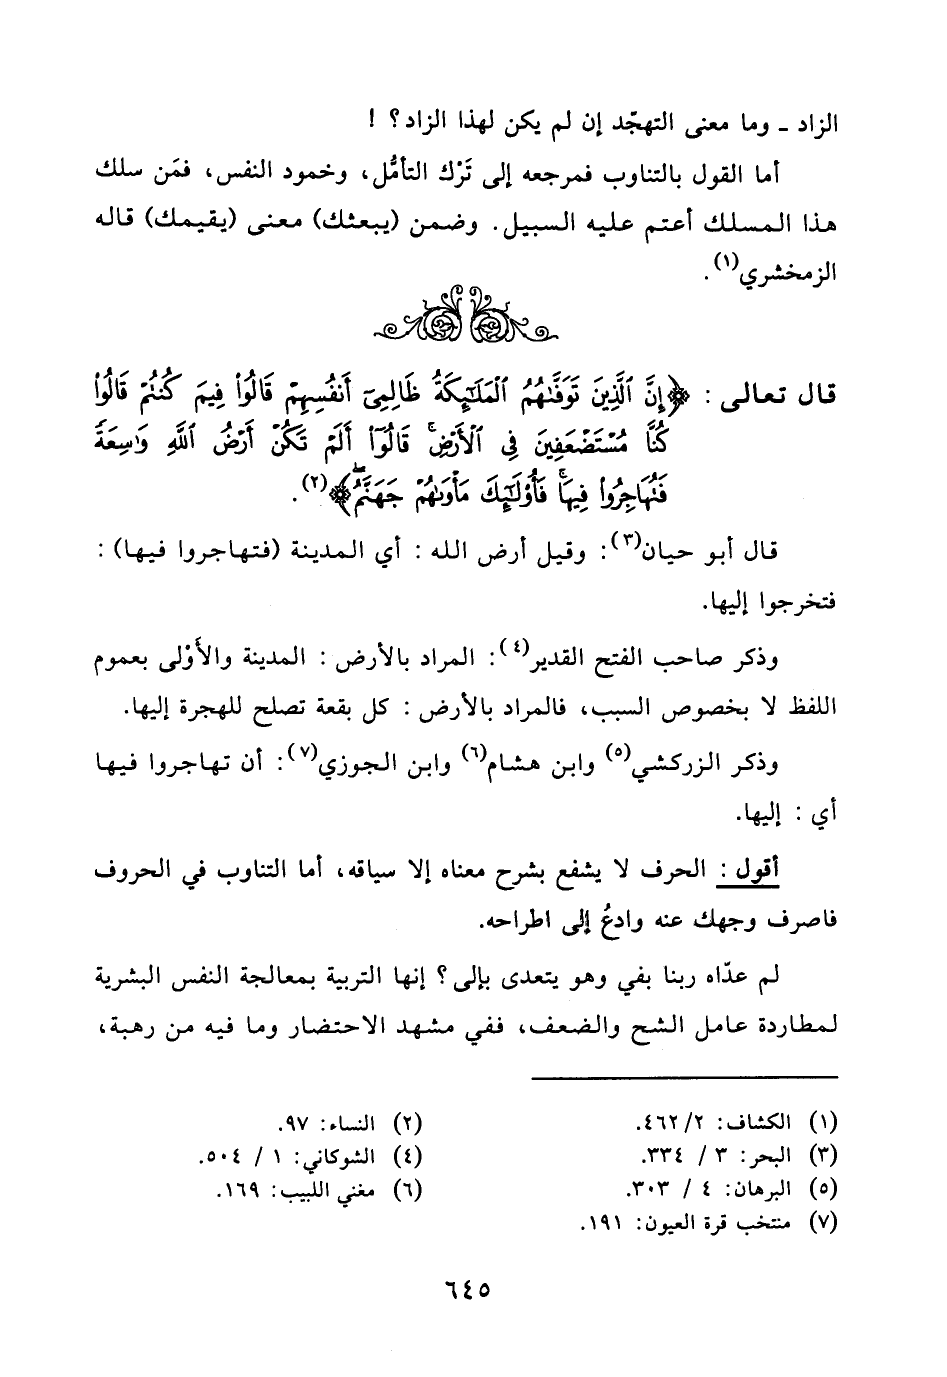 الزاد ـ وما معنى التهجّد إن لم يكن لهذا الزاد؟ !
أما القول بالتناوب فمرجعه إلى تَرْك التأمُّل، وخمود النفس، فمَن سلك
هذا المسلك أعتم عليه السبيل. وضمن (يبعثك) معنى (يقيمك) قاله
الزمخشري(١).
قال تعالى : ﴿إِنَّ ٱلَّذِينَ تَوَفَّىٰهُمُ ٱلْمَلَـٰٓئِكَةُ ظَالِمِىٓ أَنفُسِهِمْ قَالُوا۟ فِيمَ كُنتُمْ قَالُوا۟
كُنَّا مُسْتَضْعَفِينَ فِى ٱلْأَرْضِ ۚ قَالُوٓا۟ أَلَمْ تَكُنْ أَرْضُ ٱللَّهِ وَٰسِعَةً
فَتُهَاجِرُوا۟ فِيهَا ۚ فَأُو۟لَـٰٓئِكَ مَأْوَىٰهُمْ جَهَنَّمُ ۖ﴾(٢).
قال أبو حيان(٣): وقيل أرض الله : أي المدينة (فتهاجروا فيها) :
فتخرجوا إليها.
وذكر صاحب الفتح القدير(٤): المراد بالأرض : المدينة والأَوْلى بعموم
اللفظ لا بخصوص السبب، فالمراد بالأرض : كل بقعة تصلح للهجرة إليها.
وذكر الزركشي(٥) وابن هشام(٦) وابن الجوزي(٧): أن تهاجروا فيها
أي : إليها.
أقول : الحرف لا يشفع بشرح معناه إلا سياقه، أما التناوب في الحروف
فاصرف وجهك عنه وادعُ إلى اطراحه.
لم عدّاه ربنا بفي وهو يتعدى بإلى؟ إنها التربية بمعالجة النفس البشرية
لمطاردة عامل الشح والضعف، ففي مشهد الاحتضار وما فيه من رهبة،
(١) الكشاف: ٢/ ٤٦٢.
(٢) النساء: ٩٧.
(٣) البحر: ٣ / ٣٣٤.
(٤) الشوكاني: ١ / ٥٠٤.
(٥) البرهان: ٤ / ٣٠٣.
(٦) مغني اللبيب: ١٦٩.
(٧) منتخب قرة العيون: ١٩١.
٦٤٥